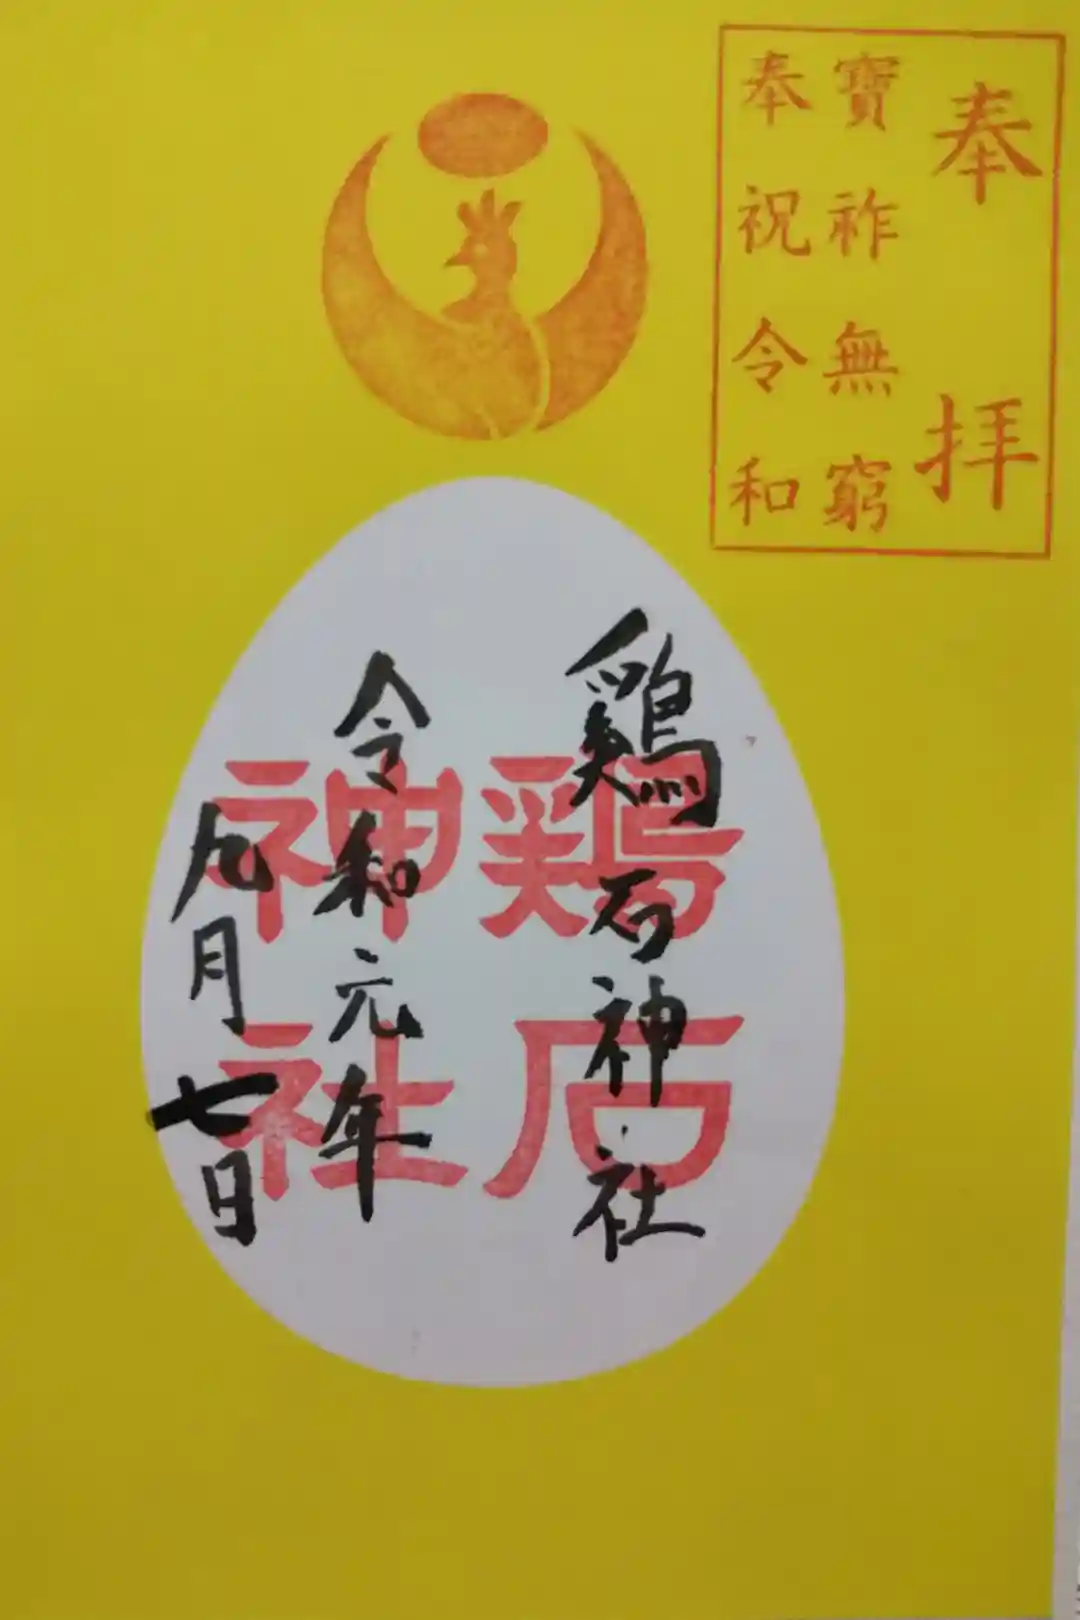 奉拝
寶祚無窮
奉祝令和
鶏石神社
令和元年
九月七日
鶏石
神社